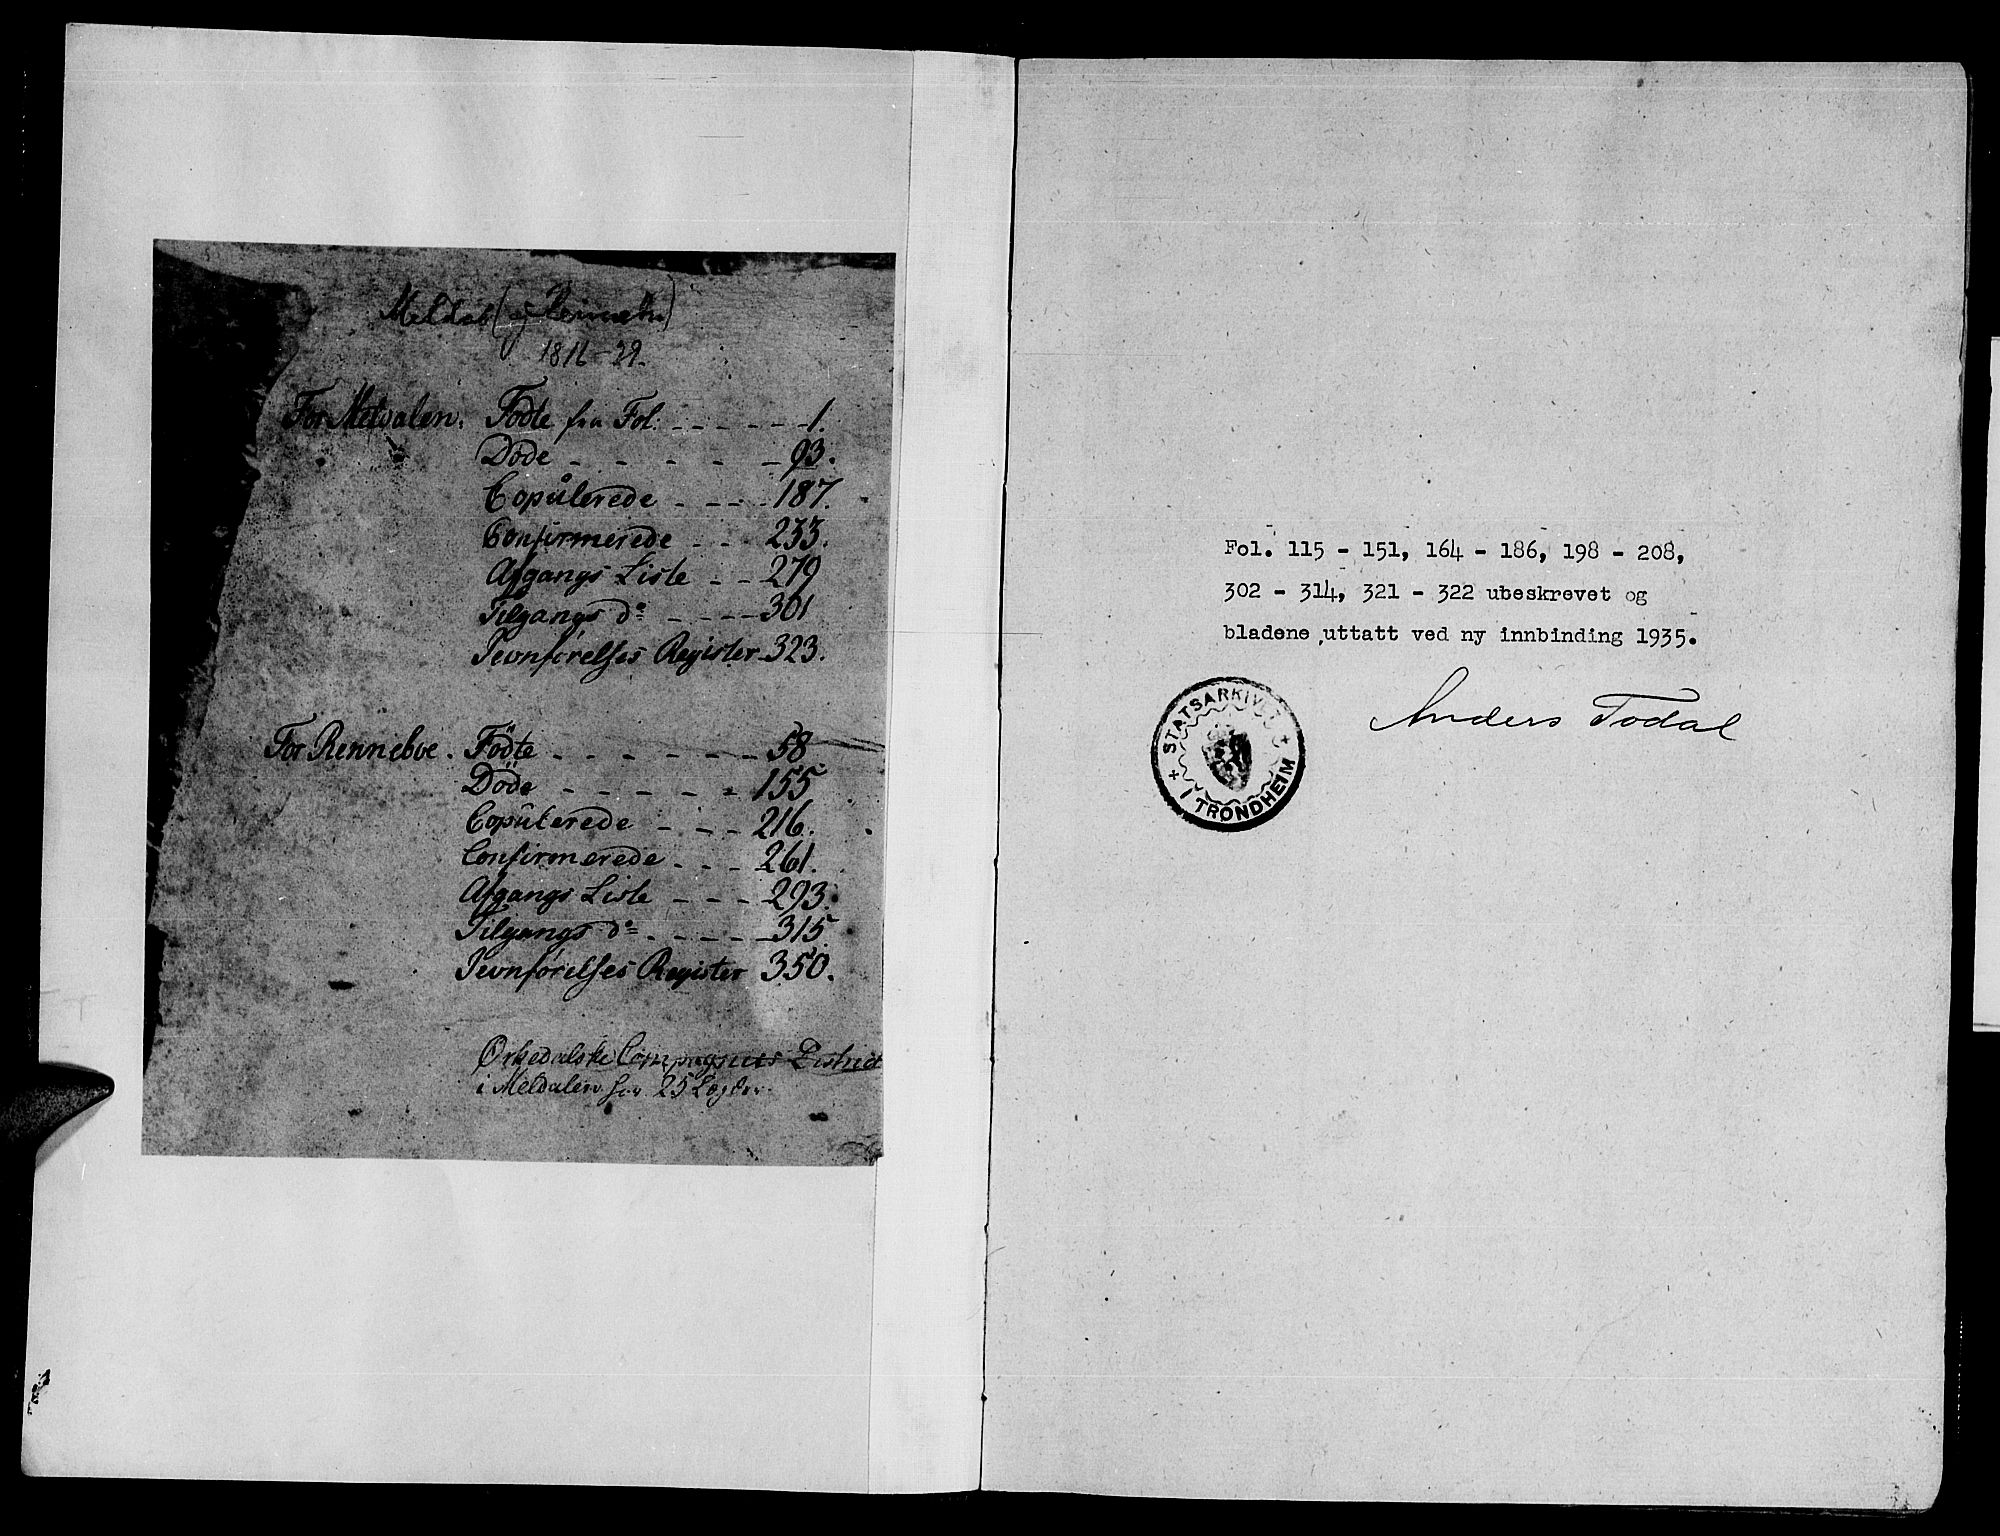 Meldal (og Rennebu)
1816-29.
For Meldalen. Födte fra Fol. - - - - - - 1.
Döde - - - - - 93.
Copulerede - - - - 187.
Confirmerede - - - 233.
Afgangs Liste - - 279
Tilgangs do - - - - 301
Jevnførelses Register - 323.
For Renneboe. Födte - - - - - - 58
Döde - - - - - - 155
Copulerede - - - 216.
Confirmerede - - - 261.
Afgangs Liste - - - 293.
Tilgangs do - - - - - 315
Jevnførelses Register 350.
Ørkedalske Compagnies District
i Meldalen har 25 Lægder.
Fol. 115 - 151, 164 - 186, 198 - 208,
302 - 314, 321 - 322 ubeskrevet og
bladene uttatt ved ny innbinding 1935.
Anders Todal
STATSARKIVET
I TRONDHEIM